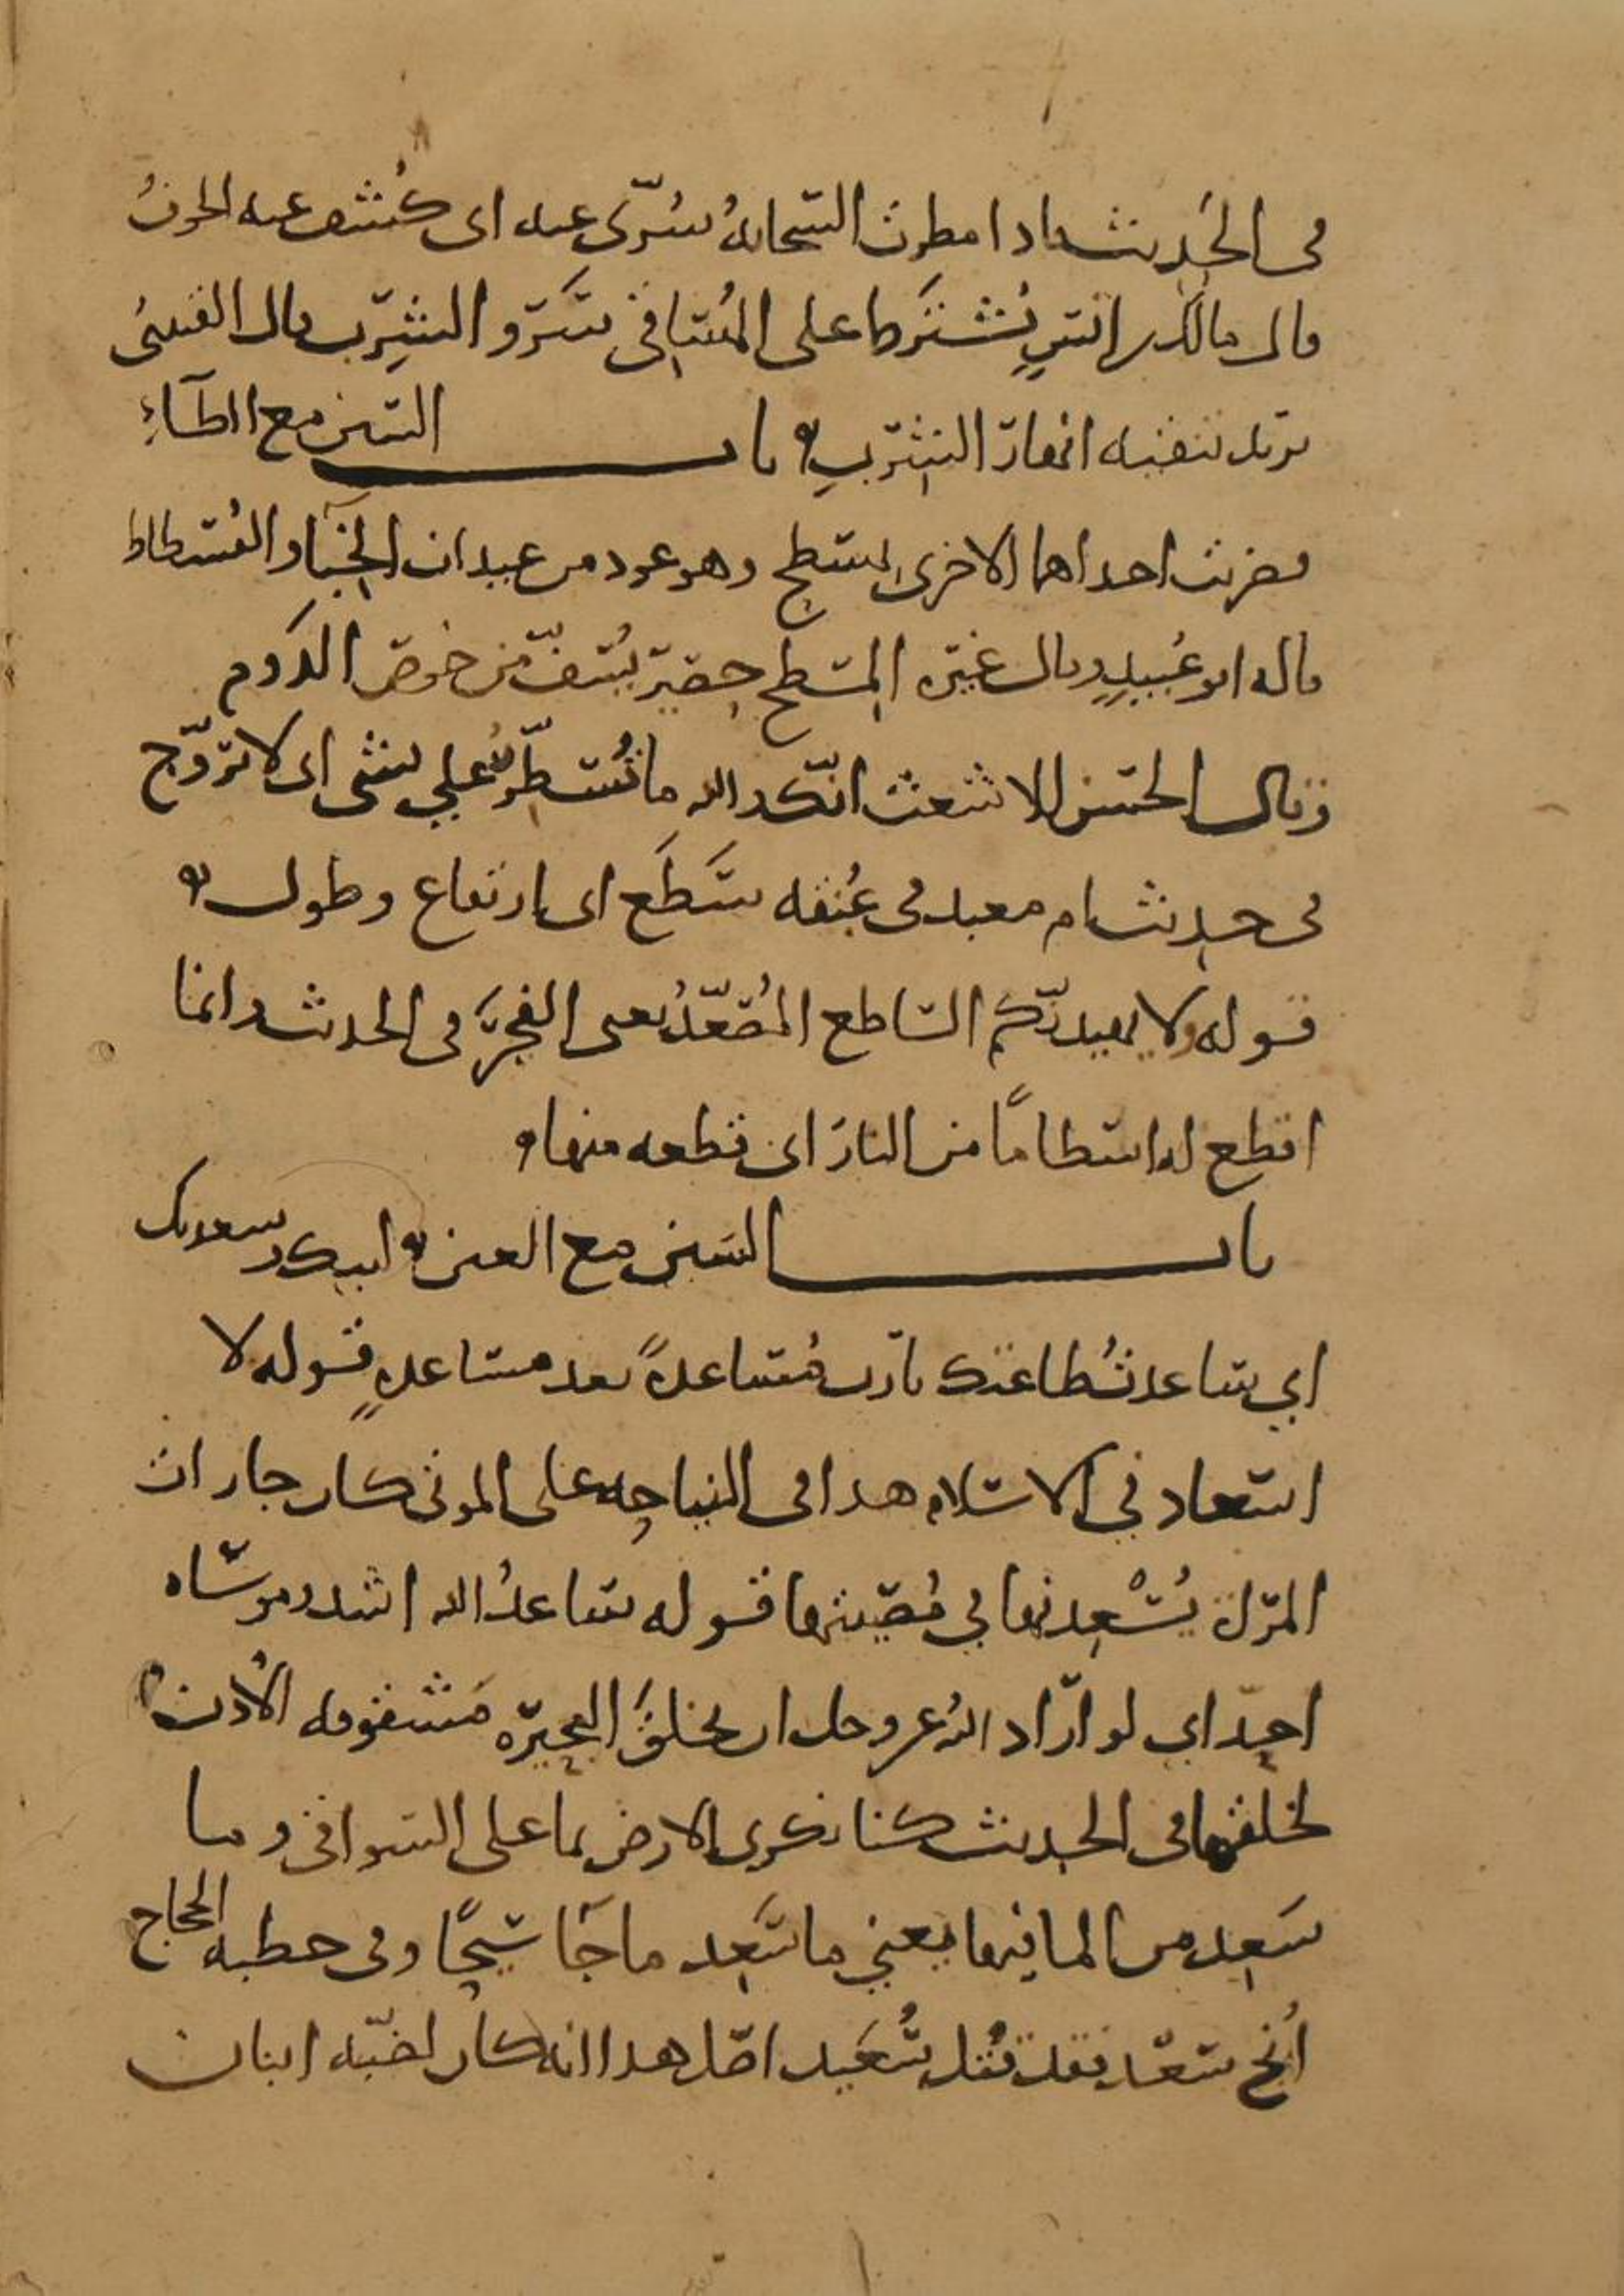 فى الحديث فاذا مطرت السحابة سُرّى عنه اى كُشف عنه الخوفُ
قال مالك بن انسٍ يُشترط على المُساقى سَرْو الشِرْب قال القتبىُ
يريد تنقيه انهار الشرْبِ ه باب السين مع الطآءِ
فضربت احداهما الاخرى بمسطح وهو عود من عيدان الخِبآء او الفُسطاط
قاله ابو عُبيدٍ وقال غيره المِسطح حصير يُسَفّ من خوص الدَوم
وقال الحسن للاشعث انّك والله ما تُسَطّرُ علي بشى اى لا تروّج
فى حديث ام معبد فى عُنقه سَطَع اى ارتفاع وطول ه
قوله ولا يهيدنّكم الساطع المُصَعّدُ يعنى الفجرَ فى الحديث فانما
اقطع له اسطامًا من النار اى قطعه منها ه
باب السين مع العين ه لبيك وسعديك
اي ساعدتُ طاعتك يا رب مُساعدةً بعد مساعدةٍ قوله لا
اسعاد في الاسلام هذا فى النياحه على الموتى كان جارات
المرأة يُسْعِدنها في مُصيبتها قوله ساعدُ الله اشد وموسَاه
احدّ اي لو ارَاد الله عز وجل ان يخلقَ البحيَره مَشقوقه الاُذنُ
لخلقها فى الحديث كنا نكرى الارض بما على السواقى وما
سَعِد من الما فيها يعني ما سَعِد ما جَآ سَيحًا وفى خطبه الحجاج
اُنج سَعْد فقد قُتل سُعَيد اصْل هذا انه كان لضبّه ابنان